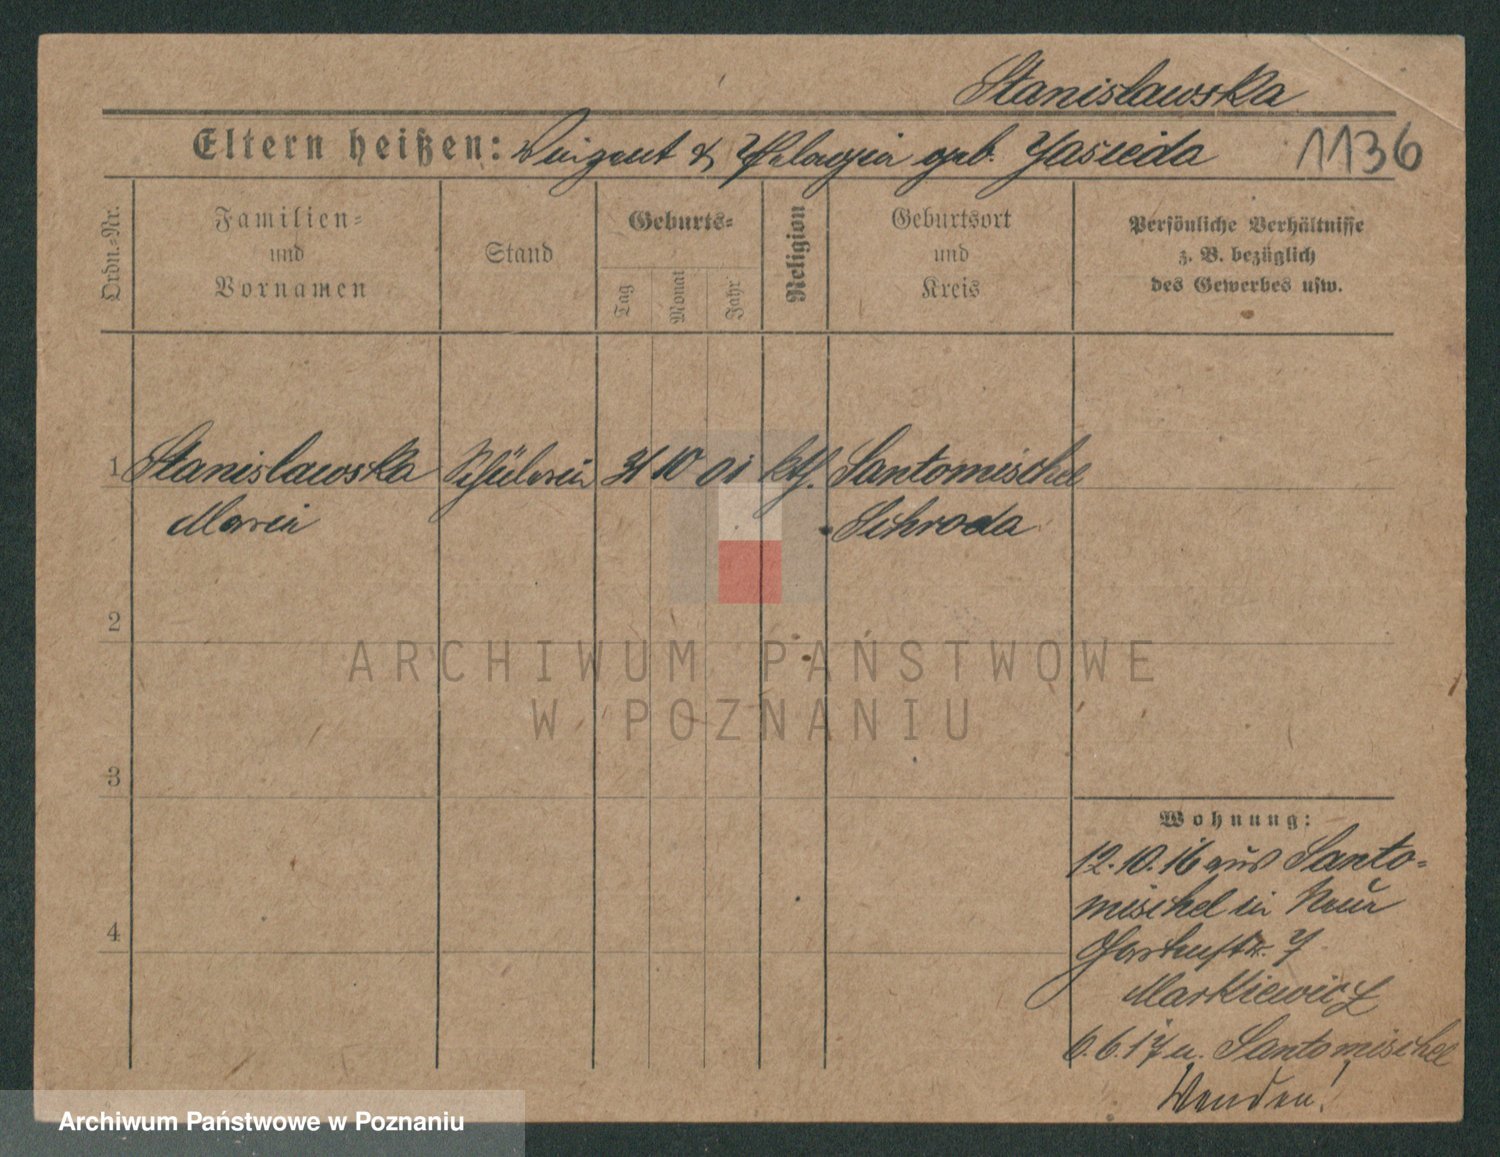 Stanislawska
Eltern heißen: Vinzent & Pelagia geb. Jasieda
1136
Ordn.-Nr.
Familien-
und
Vornamen
Stand
Geburts-
Tag
Monat
Jahr
Religion
Geburtsort
und
Kreis
Persönliche Verhältnisse
z. B. bezüglich
des Gewerbes usw.
1 Stanislawska Schülerin 31 10 01 kth. Santomischel
Maria Schroda
2
ARCHIWUM PAŃSTWOWE
W POZNANIU
3
Wohnung:
12.10.16 aus Santo-
mischel in
4
Gartenstr. 7
Markiewicz
6.6.17 n. Santomischel
Wenden!
Archiwum Państwowe w Poznaniu